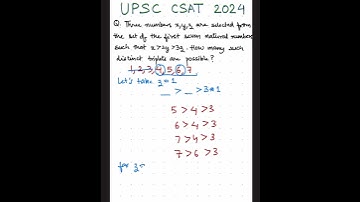 UPSC CSAT 2024
Q. Three numbers x,y,z are selected from
the set of the first seven natural numbers
such that x > 2y > 3z. How many such
distinct triplets are possible?
1, 2, 3, 4, 5, 6, 7
Let's take z = 1
_ > _ > 3*1
5 > 4 > 3
6 > 4 > 3
7 > 4 > 3
7 > 6 > 3
for z =